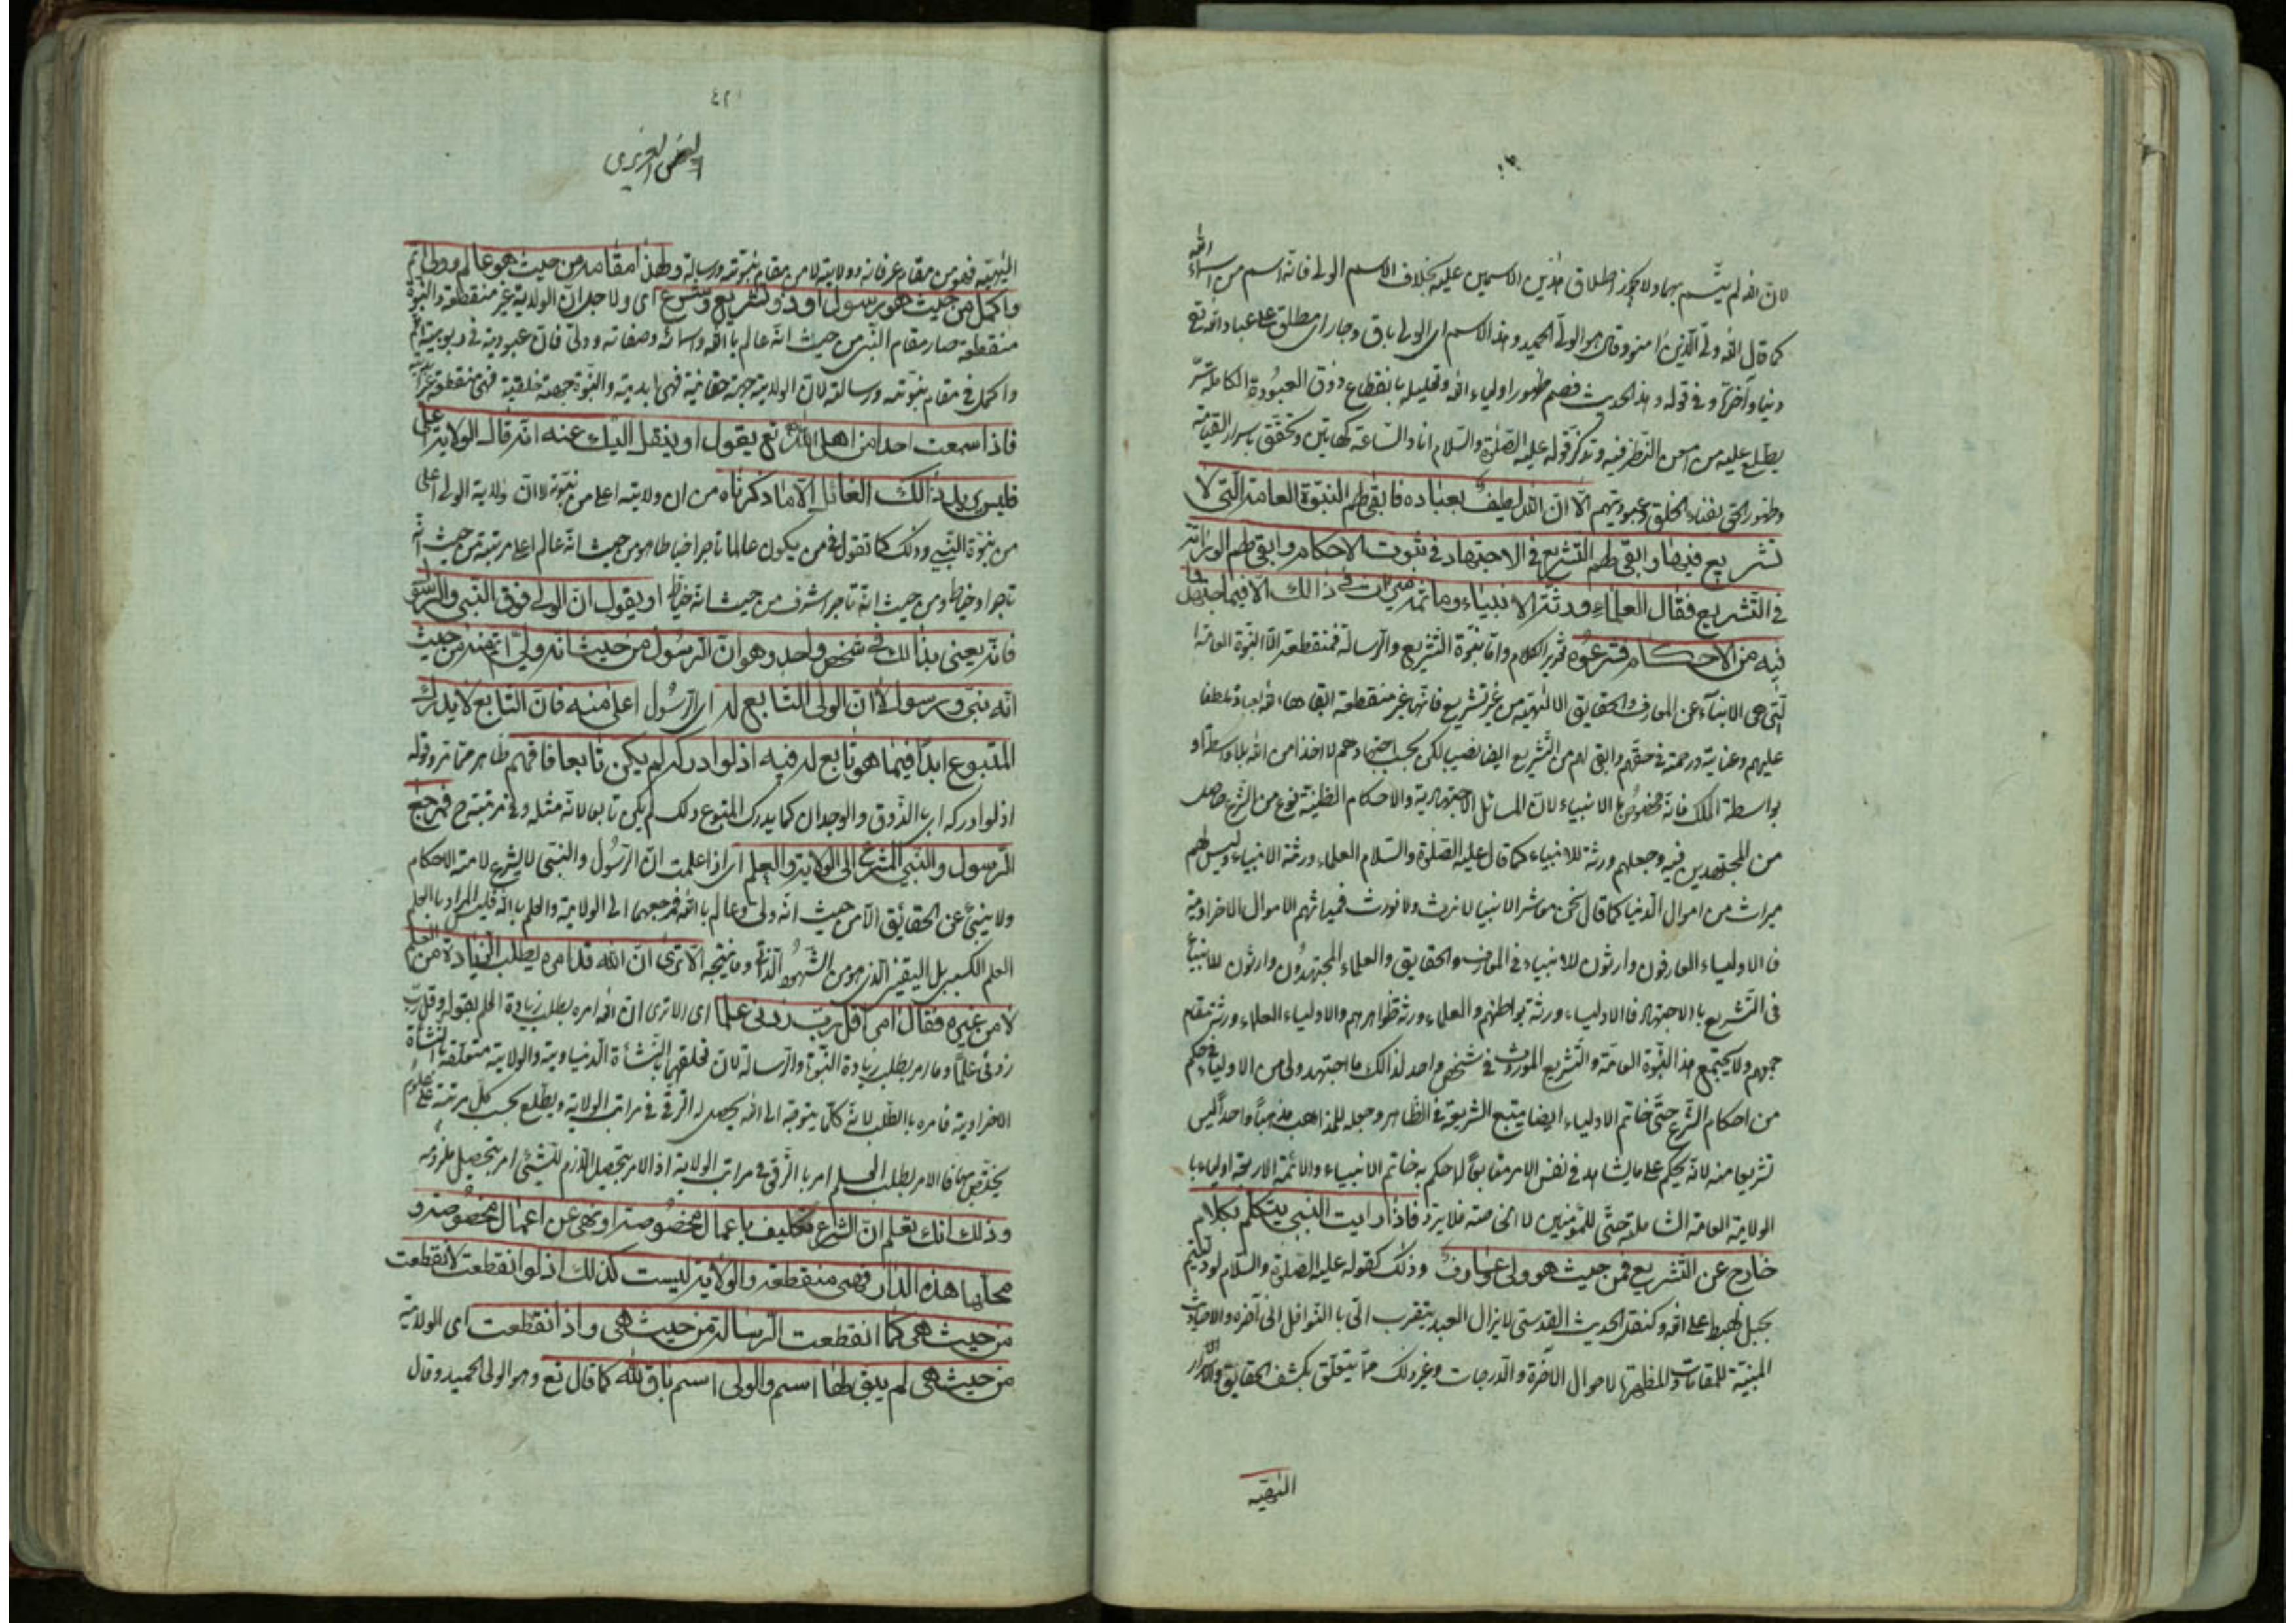 لان الله لم يتسم بهما ولا يجوز اطلاق هذين الاسمين عليه بخلاف الاسم الولى فانه اسم من اسماء الله
كما قال الله ولى الذين امنوا وقال هو الولى الحميد وهذا الاسم اى الولى باق وجار اى مطلق على عباد الله تع
دنيا وآخرة وفى قوله وهذا الحديث قصم ظهور اولياء الله وتعليله بانقطاع ذوق العبودة الكاملة سر
يطلع عليه من امعن النظر فيه وتذكر قوله عليه الصلوة والسلام انا والساعة كهاتين وتحقق باسرار القيامة
وظهور الحق بفناء الخلق وعبوديتهم الا ان الله لطيف بعباده فابقى لهم النبوة العامة التى لا
تشريع فيها وابقى لهم التشريع فى الاجتهاد فى ثبوت الاحكام وابقى لهم الوراثة
فى التشريع فقال العلماء ورثة الانبياء وما ثمه ميراث فى ذالك الا فيما اجتهدوا
فيه من الاحكام فشرعوه تقرير الكلام واما نبوة التشريع والرسالة فمنقطعة اما النبوة العامة
التى هى الانبآء عن المعارف والحقايق الالهية من غير تشريع فانها غير منقطعة ابقاها الله لعباده لطفا
عليهم وعناية ورحمة فى حقهم وابقى لهم من التشريع ايضا نصيب لكن بحسب اجتهادهم لا اخذا من الله بلا واسطة او
بواسطة الملك فانه مخصوص بالانبياء لان المسائل الاجتهادية والاحكام الظنية نوع من التشريع حاصل
من المجتهدين فيه وجعلهم ورثة للانبياء كما قال عليه الصلوة والسلام العلماء ورثة الانبياء وليس لهم
ميراث من اموال الدنيا كما قال نحن معاشر الانبيا لا نرث ولا نورث فميراثهم الاموال الاخراوية
فالاولياء العارفون وارثون للانبياء فى المعارف والحقايق والعلماء المجتهدون وارثون للانبياء
فى التشريع بالاجتهاد فالاولياء ورثة بواطنهم والعلماء ورثة ظواهرهم والاولياء العلماء ورثة مقام
جمعهم ولا يجتمع هذا النبوة العامة والتشريع الموروث فى شخص واحد لذالك ما اجتهد ولى من الاولياء فى حكم
من احكام الشرع حتى خاتم الاولياء ايضا يتبع الشريعة فى الظاهر وجعله للمذاهب مذهبا واحدا ليس
تشريعا منه لانه يحكم على ما يشاهد فى نفس الامر متابعا لما حكم به خاتم الانبياء والائمة الاربعة اولياء با
الولاية العامة الشاملة حتى للمؤمنين لا الخاصة فلا يرد فاذا رايت النبى يتكلم بكلام
خارج عن التشريع فمن حيث هو ولى عارف وذلك كقوله عليه الصلوة والسلام لو دليتم
بحبل لهبط على الله وكنقل الحديث القدسى لا يزال العبد يتقرب الى بالنوافل الى آخره والاحاديث
المبينة للمقامات والمظهرة لاحوال الآخرة والدرجات وغير ذلك مما يتعلق بكشف الحقايق والاسرار
٤٢
الفص العزيرى
الالهية فهو من مقام عرفانه وولايته لا من مقام نبوته ورسالته ولهذا مقامه من حيث هو عالم وولى اتم
واكمل من حيث هو رسول او ذو تشريع وشرع اى ولاجل ان الولاية غير منقطعة والنبوة
منقطعة صار مقام النبى من حيث انه عالم بالله واسمائه وصفاته وولى فان عبوديته فى ربوبيته اتم
واكمل فى مقام نبوته ورسالته لان الولاية جهة حقانية فهى ابدية والنبوة جهة خلقية فهى منقطعة غير
فاذا سمعت احدا من اهل الله تع يقول او ينقل اليك عنه انه قال الولاية اعلى
فليس يريد ذالك القائل الا ما ذكرناه من ان ولايته اعلى من نبوته لا ان ولاية الولى اعلى
من نبوة النبى وذلك كما تقول فى من يكون عالما تاجرا خياطا هو من حيث انه عالم اعلى مرتبة من حيث انه
تاجر او خياط ومن حيث انه تاجر اشرف من حيث انه خياط او يقول ان الولى فوق النبى والرسول
فانه يعنى بذالك فى شخص واحد وهو ان الرسول من حيث انه ولى اتم منه من حيث
انه نبى ورسول لا ان الولى التابع له اى الرسول اعلى منه فان التابع لا يدرك
المتبوع ابدا فيما هو تابع له فيه اذ لو ادركه لم يكن تابعا فافهم ظاهر مما مر وقوله
اذ لو ادركه اى بالذوق والوجدان كما يدرك المتبوع ذلك لم يكن تابعا لانه مثله وفى مرتبته ح فمرجع
الرسول والنبى المشرع الى الولاية والعلم اى اذا علمت ان الرسول والنبى لا يشرع لامة الاحكام
ولا ينبئ عن الحقائق الا من حيث انه ولى وعالم بالله فمرجعهما الى الولاية والعلم بالله فليس المراد بالعلم
العلم الكسبى بل اليقين الذى هو من الشهود الذاتى وما ينتجه الا ترى ان الله قد امره بطلب الزيادة من العلم
لا من غيره فقال آمرا قل رب زدنى علما اى الا ترى ان الله امره بطلب زيادة العلم بقوله وقل رب
زدنى علما وما امر بطلب زيادة النبوة والرسالة لان تعلقهما بالنشأة الدنياوية والولاية متعلقة بالنشأة
الاخراوية فامره بالطلب لانه كان يتوجه الى الله يحصل له الترقى فى مراتب الولاية ويطلع بحسب كل مرتبة على علوم
يختص بها فالامر بطلب العلم امر بالترقى فى مراتب الولاية اذ الامر بتحصيل اللازم للشئ امر بتحصيل ملزومه
وذلك انك تعلم ان الشرع تكليف باعمال مخصوصة او نهى عن اعمال مخصوصة و
محلها هذه الدار فهى منقطعة والولاية ليست كذلك اذ لو انقطعت لانقطعت
من حيث هى كما انقطعت الرسالة من حيث هى واذا انقطعت اى الولاية
من حيث هى لم يبق لها اسم والولى اسم باق لله كما قال تع وهو الولى الحميد وقال